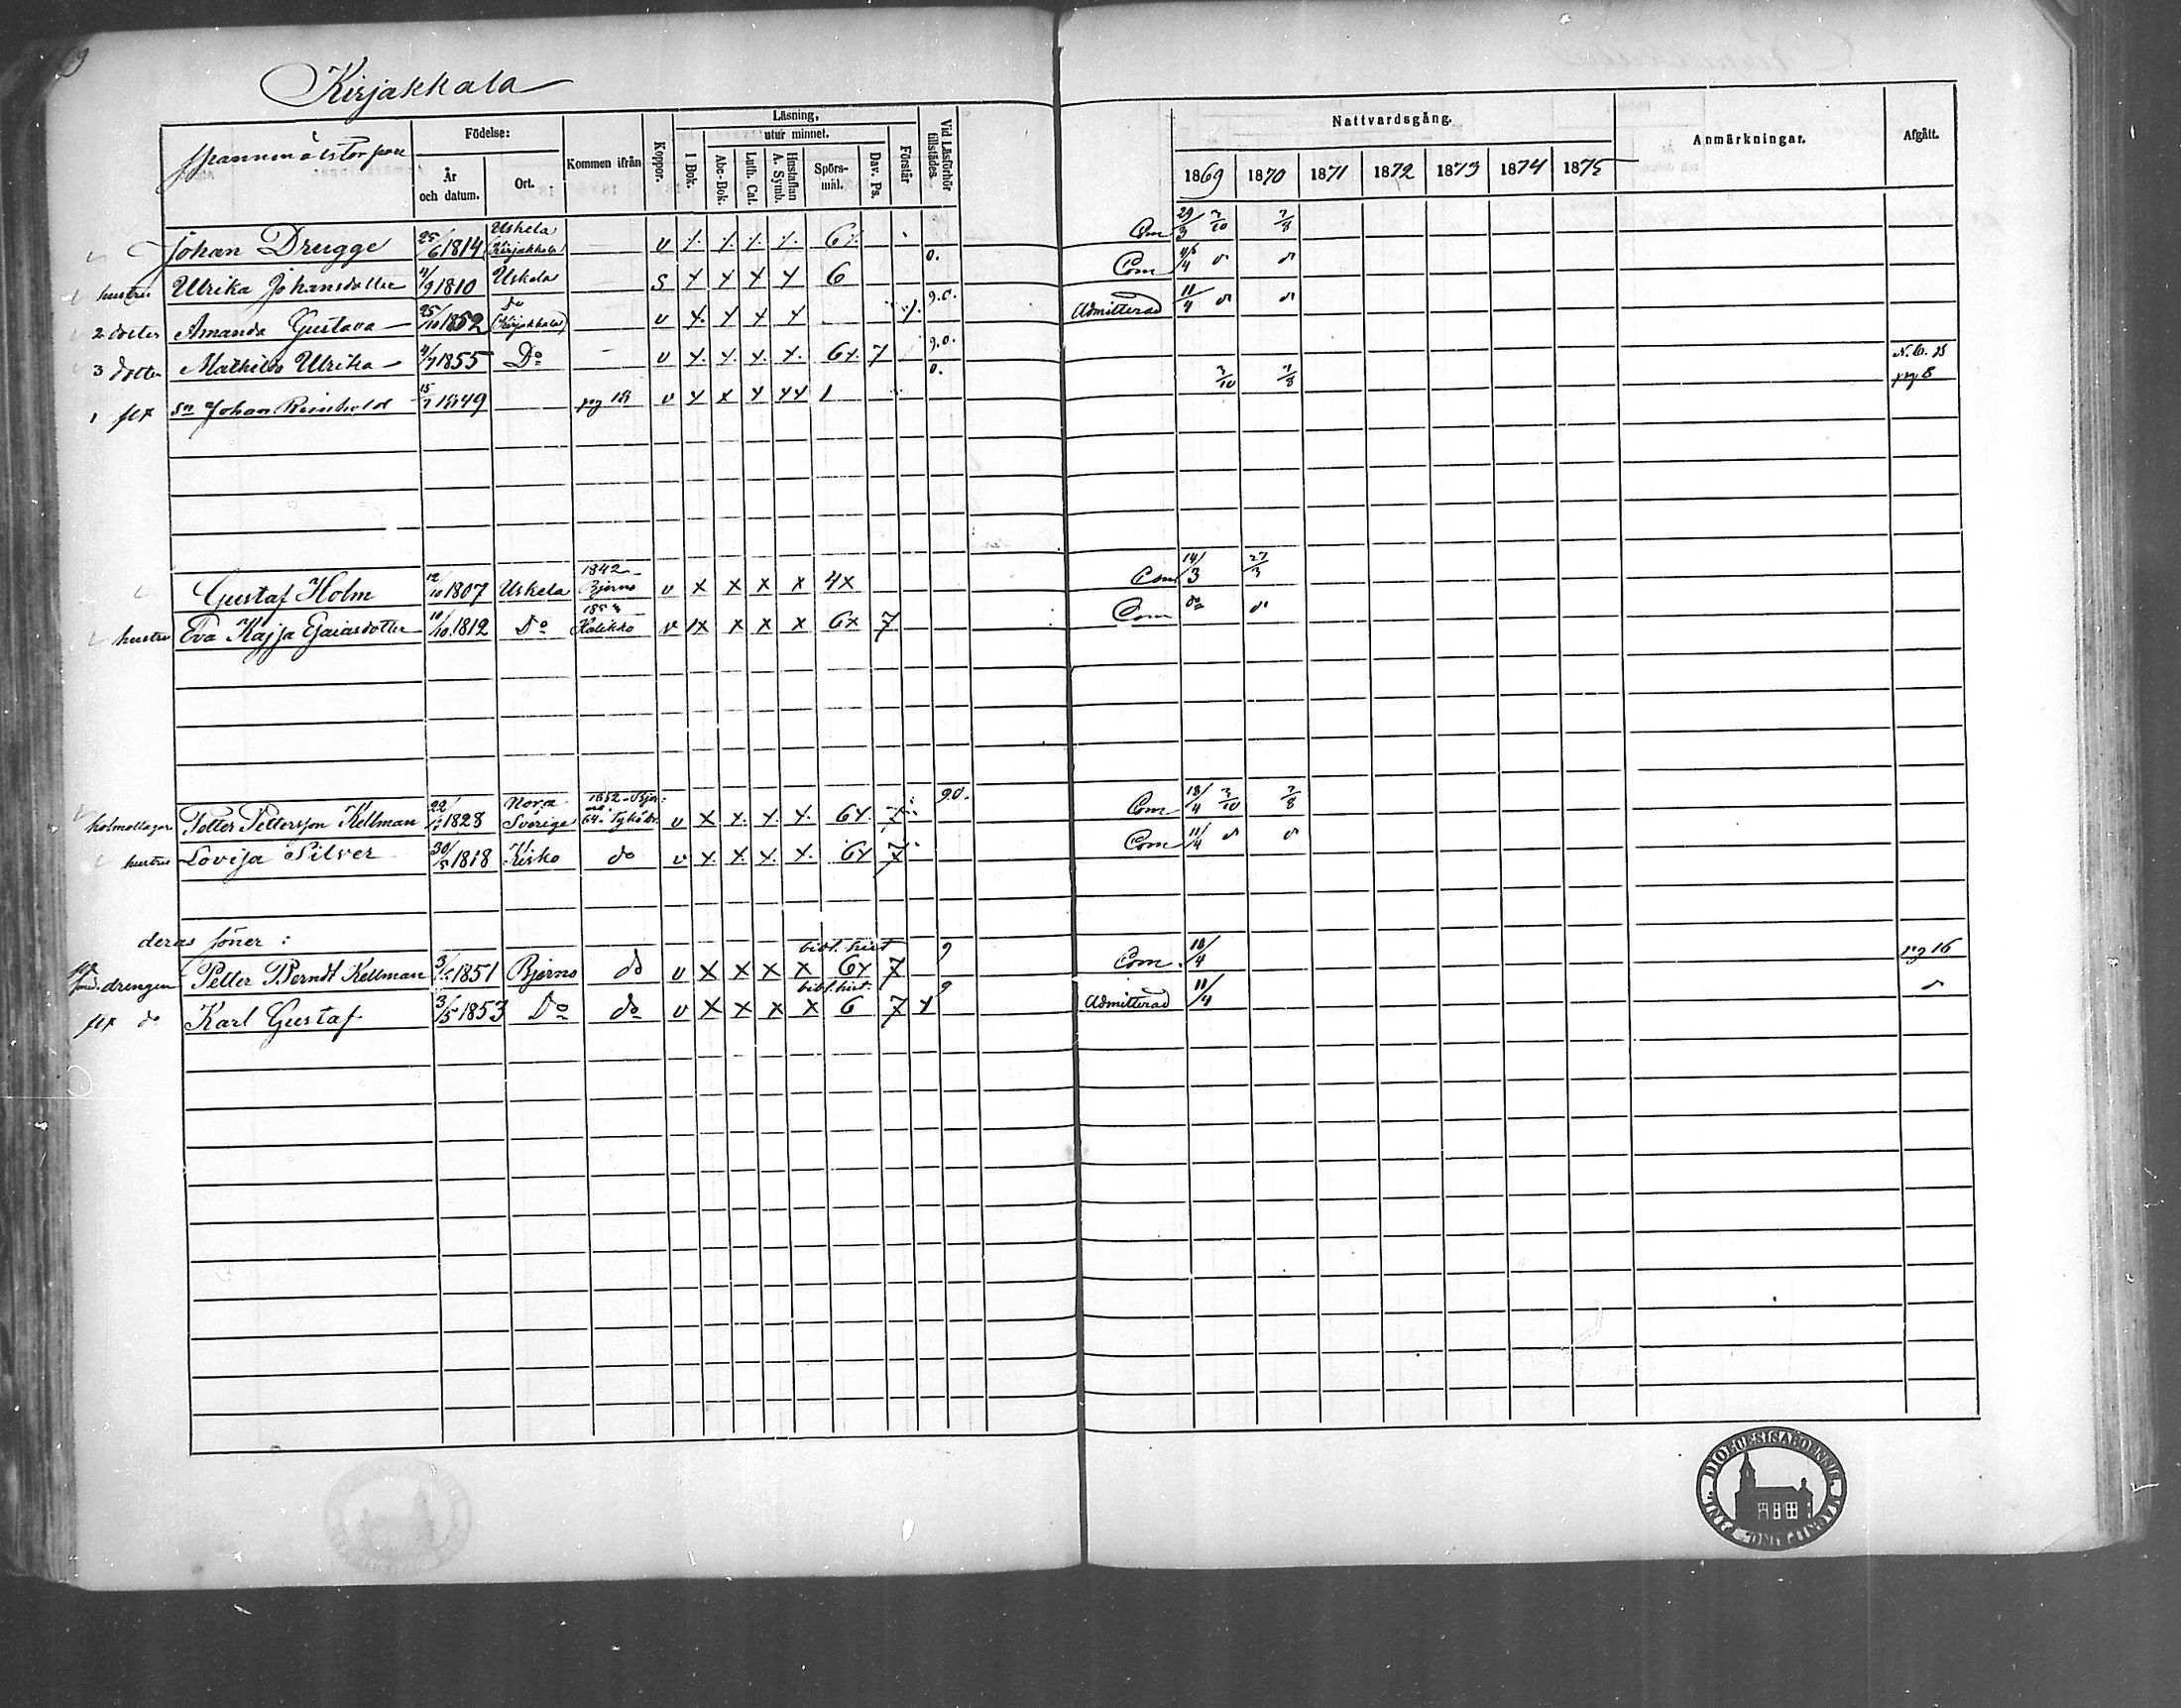 9
Kirjakkala
Födelse:
Läsning,
utur minnet.
År och datum.
Ort.
Kommen ifrån
Koppor.
I Bok.
Abc-Bok.
Luth. Cat.
Hustaflan A. Symb.
Spörs-mål.
Dav. Ps.
Förstår
Vid Läsförhör tillstädes.
Nattvardsgång.
1869 1870 1871 1872 1873 1874 1875
Anmärkningar.
Afgått.
Johan Drugge 25/6 1814 Uskela (Kirjakkala) v 6 Com 29/3 3/10 7/8
hustru Ulrika Johansdotter 4/9 1810 Uskela s 6 0. Com
2 dotter Amanda Gustava 25/10 1852 do (Kirjakkala) v g.o. Admitterad 11/4
3 dotter Mathilda Ulrika 4/7 1855 Do v 6 7 g.o.
1 son Johan Reinhold 15/7 1849 pag v 1 0. 3/10 7/8 pag 8
Gustaf Holm 12/10 1807 Uskela 1842 Bjerno v x x x x 4x Com 14/3 27/3
hustru Eva Kajsa Esaiasdotter 10/10 1812 Do Halikko v x x x x 6x 7 Com do
kolmottagare Petter Pettersson Kellman 1828 Nora Sverige 1852 v x x x x 6x 7 g.o. Com 18/4 3/10 7/8
hustru Lovisa Silver 30/ 1818 Kisko do v x x x x 6x 7 Com 11/4
deras söner :
drengen Petter Berndt Kellman 1851 Bjerno do v x x x x bibl. hist 6x 7 9 Com 18/4 pag 16
do Karl Gustaf 3/5 1853 Do do v x x x x bibl. hist. 6 7 x 9 Admitterad 11/4